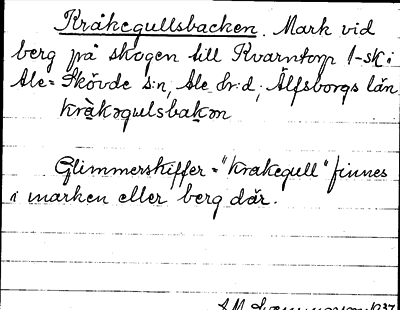 Kråkegullsbacken. Mark vid
berg på skogen till Kvarntorp 1-sk i
Ale-Skövde s:n, Ale hr:d, Älfsborgs län
kràkəgulsbakən
Glimmerskiffer = "krakegull" finnes
i marken eller berg där.